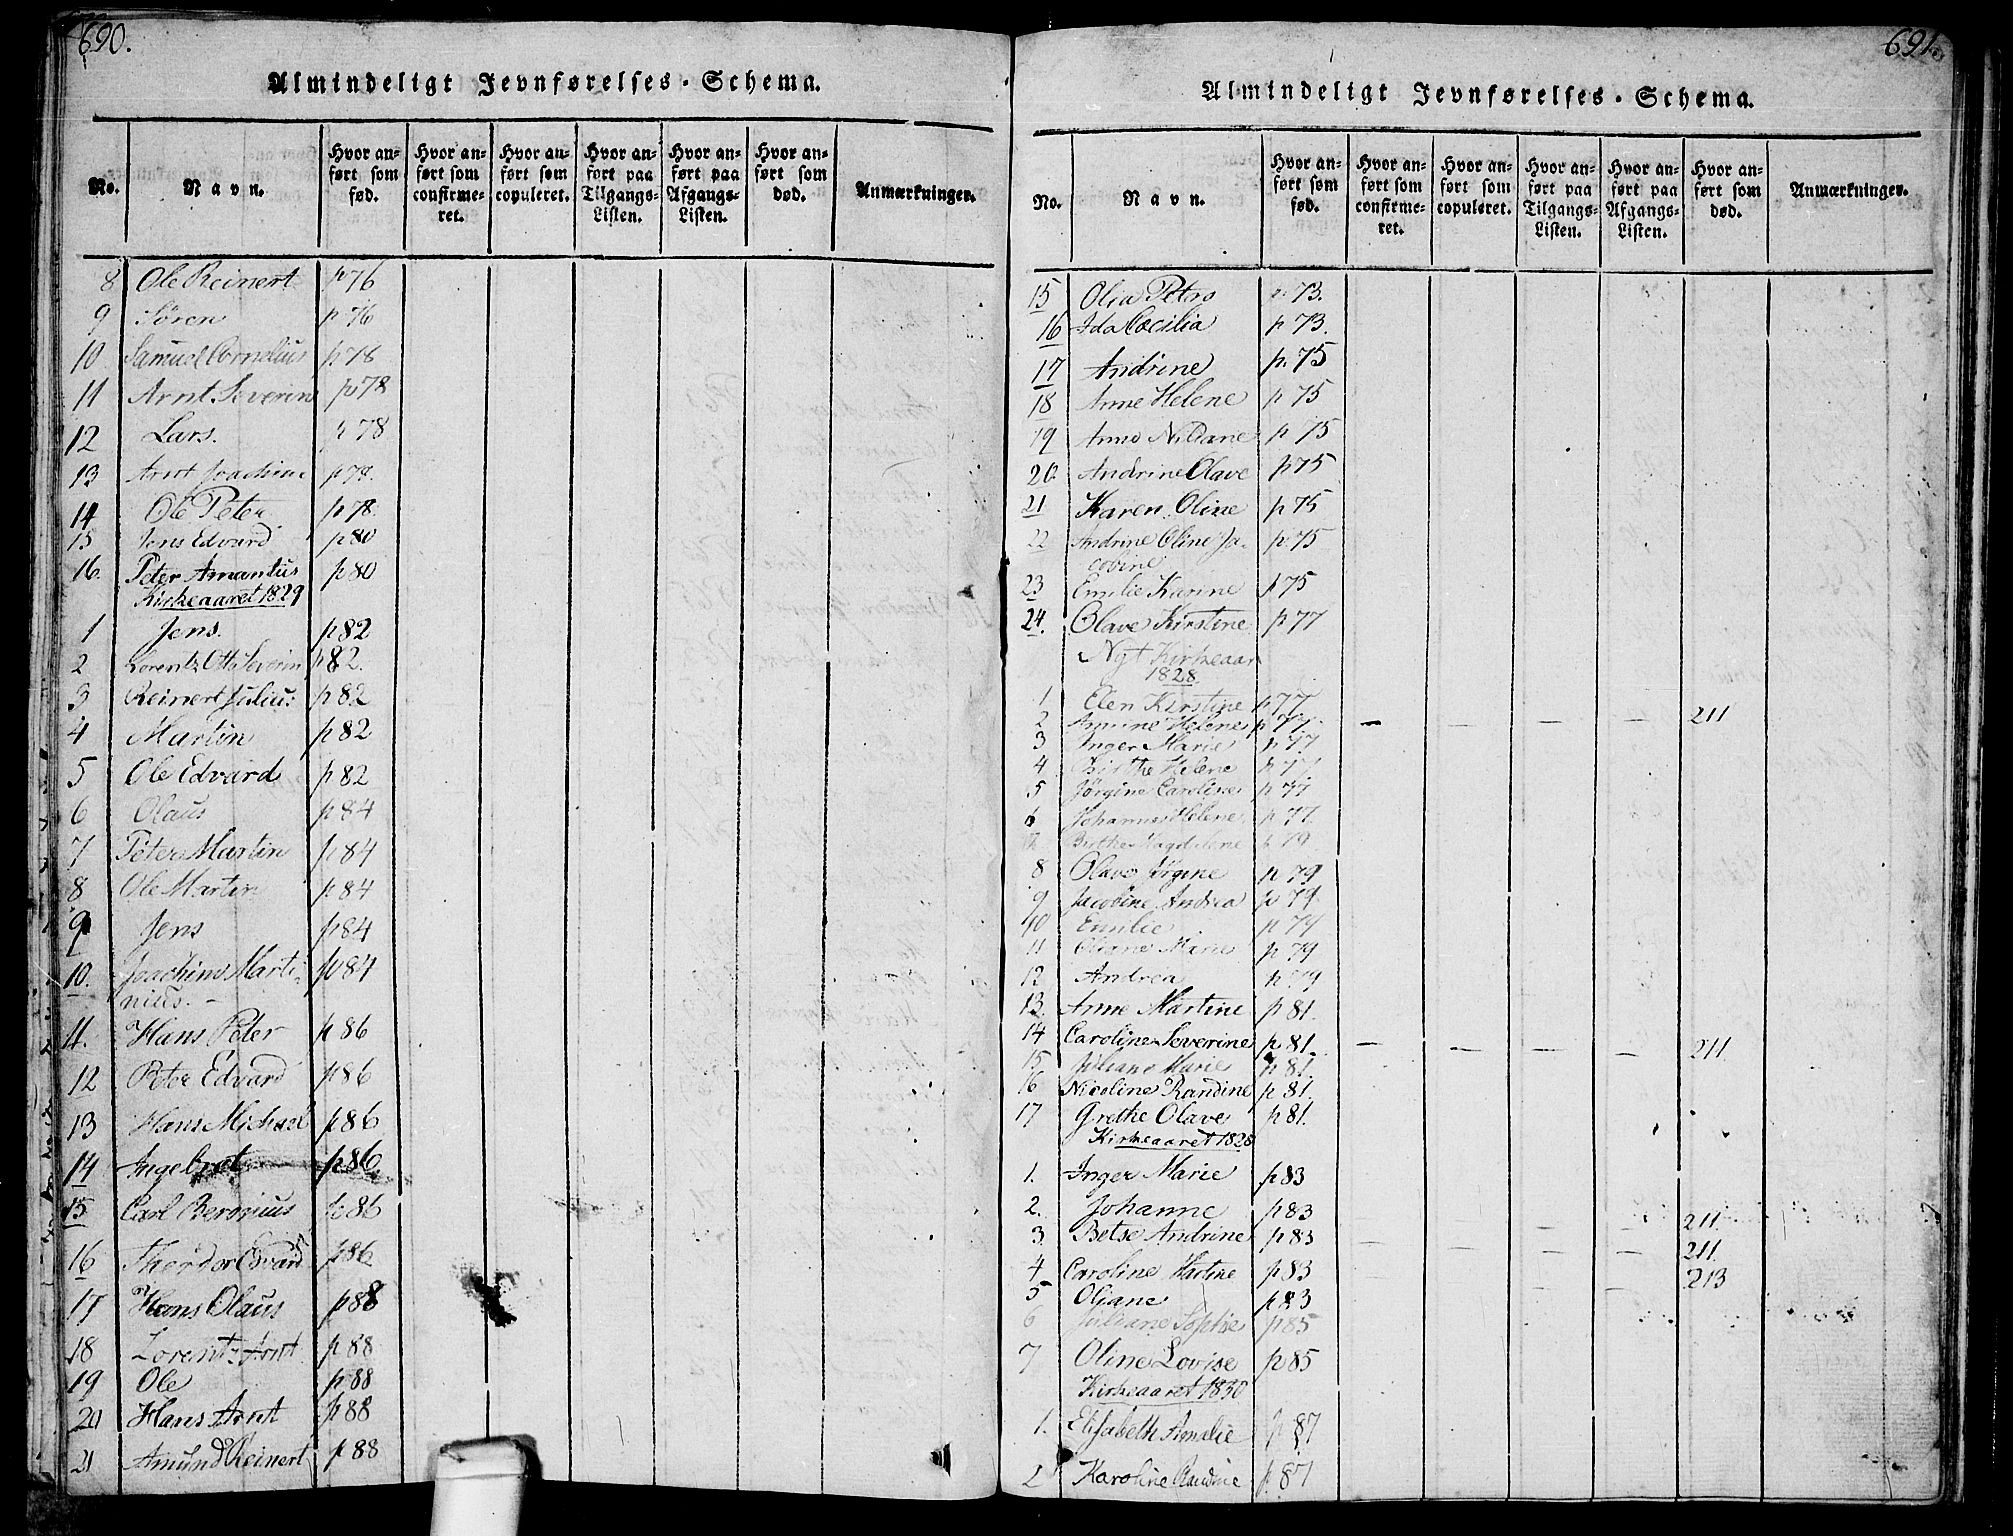 690.
Almindeligt Jevnførelses-Schema.
No. Navn. Hvor anført som fød. Hvor anført som confirmeret. Hvor anført som copuleret. Hvor anført paa Tilgangs-Listen. Hvor anført paa Afgangs-Listen. Hvor anført som død. Anmærkninger.
8 Ole Reinert p 76
9 Sören p 76
10 Samuel Cornelius p. 78
11 Arnt Severin p 78
12 Lars. p 78
13 Arnt Joachim p 78.
14 Ole Peter p 78.
15 Jens Edvard p 80
16. Peter Amantius p 80
Kirkeaaret 1829
1 Jens. p 82
2 Lorentz Otto Severin p 82.
3 Reinert Julius p 82
4 Martin p 82
5 Ole Edvard p 82
6 Olaus p 84
7 Peter Martin p 84
8 Ole Martin p 84
9 Jens p 84
10. Joachim Marti- p 84
nius. -
11. Hans Peter p 86
12 Peter Edvard p 86
13 Hans Michael p 86
14 Ingebret p 86
15 Carl p 86
16 Theodor Edvard p 86
17 Hans Olaus p 88
18 Lorentz Arnt p 88
19 Ole p 88
20 Hans Arnt p 88
21 Amund Reinert p 88
691.
Almindeligt Jevnførelses-Schema.
No. Navn. Hvor anført som fød. Hvor anført som confirmeret. Hvor anført som copuleret. Hvor anført paa Tilgangs-Listen. Hvor anført paa Afgangs-Listen. Hvor anført som død. Anmærkninger.
15 Olia Petrs p. 73.
16 Ida Cæcilia p 73.
17 Andrine p. 75
18 Anne Helene p 75
19 Anne p 75
20. Andrine Olave p 75
21 Karen Oline p 75
22 Andrine Oline Ja- p. 75
cobine
23 Emilie Karine p 75
24. Olave Kirstine p 77
Nyt Kirkeaar
1828.
1 Elen Kirstine p 77
2 Helene p 77. - - - 211
3 Inger Marie p 77
4 Birthe Helene p 77
5 Jörgine Caroline p 77
6 Johanne Helene p 77
7 Birthe Magdalene p 79
8 Olave Jörgine p 79
9 Jacobine Andrea p 79
10 Emilie p 79
11 Oliane Marie p 79
12 Andrea p 79
13. Anne Martine p 81.
14 Caroline Severine p 81. - - - - 211.
15. Juliane Marie p 81.
16 Nicoline Randine p 81.
17 Grethe Olave p 81.
Kirkeaaret 1828
1. Inger Marie p 83
2. Johanne p 83 211
3. Betse Andrine p 83 - - - - 211
4 Caroline Martine p 83 213
5 Oliane p 83
6 Juliane Sophie p 85
7 Oline Lovise p 85
Kirkeaaret 1830
1. Elisabeth Amalie p 87
2 Karoline p. 87